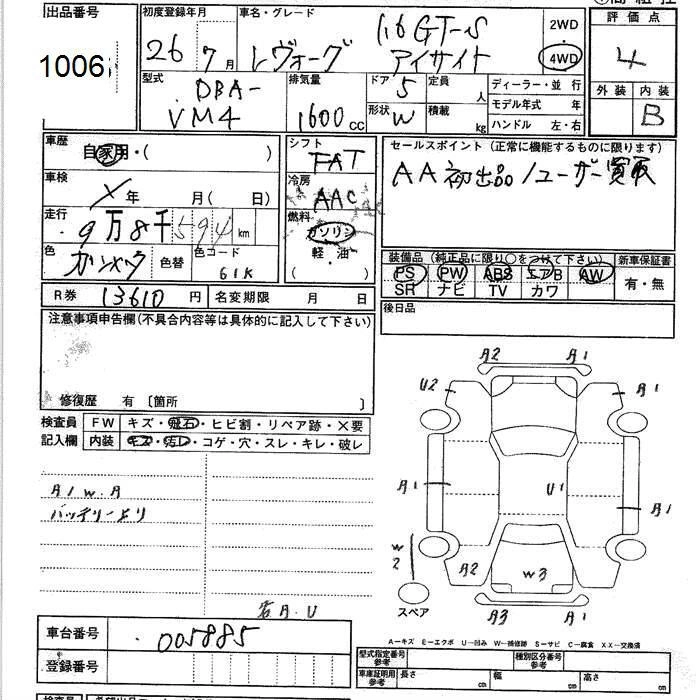 出品番号
1006
初度登録年月
26 7月
車名・グレード
レヴォーグ 1.6 GT-S
アイサイト
2WD
4WD
評価点
4
外装 内装
B
型式
DBA-
VM4
排気量
1600 CC
ドア 5
定員 人
形状 W
積載 kg
ディーラー・並 行
モデル年式 年
ハンドル 左・右
車歴
自家用・( )
車検
X 年 月(日 )
走行
9万8千594 km
色
ガンメタ
色替
色コード
61K
シフト
FAT
冷房
AAC
燃料
ガソリン
軽・油
( )
セールスポイント (正常に機能するものに限ります)
AA初出品/ユーザー買取
装備品 (純正品に限り○をつけて下さい)
新車保証書
PS PW ABS エアB AW
SR ナビ TV カワ
有・無
R券 13610 円
名変期限 月 日
後日品
注意事項申告欄(不具合内容等は具体的に記入して下さい)
修復歴 有 〔箇所 〕
検査員
記入欄
FW キズ・飛石・ヒビ割・リペア跡・×要
内装 キズ・汚レ・コゲ・穴・スレ・キレ・破レ
A1 W.A
バッテリーより
右A.U
A2 A1
U2 A1
A1 U1 A1
W2 A2 W3
A3 A1
スペア
車台番号
005885
登録番号
A-キズ E-エクボ U-凹み W-補修跡 S-サビ C-腐食 XX-交換済
型式指定番号
参考
種別区分番号
参考
車庫証明用
参考
長さ cm
幅 cm
高さ cm